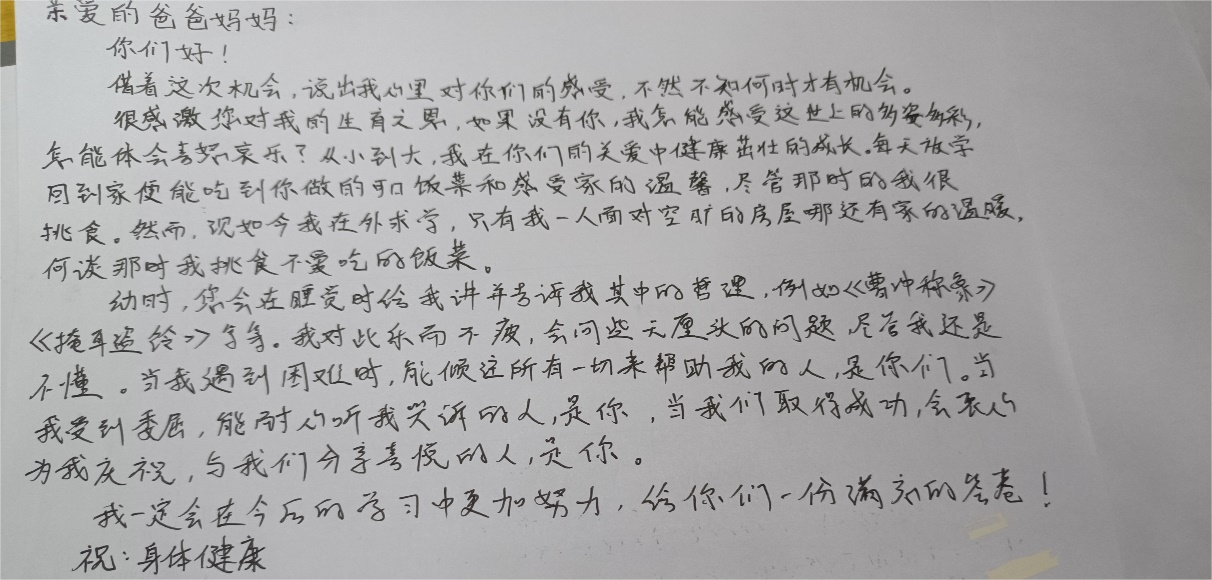 亲爱的爸爸妈妈：
你们好！
借着这次机会，说出我心里对你们的感受，不然不知何时才有机会。
很感激您对我的生育之恩，如果没有你，我怎能感受这世上的多姿多彩，
怎能体会喜怒哀乐？从小到大，我在你们的关爱中健康茁壮的成长。每天放学
回到家便能吃到你做的可口饭菜和感受家的温馨，尽管那时的我很
挑食。然而，现如今我在外求学，只有我一人面对空旷的房屋哪还有家的温暖，
何谈那时我挑食不爱吃的饭菜。
幼时，您会在睡觉时给我讲并告诉我其中的哲理，例如《曹冲称象》
《掩耳盗铃》等等。我对此乐而不疲，会问些无厘头的问题，尽管我还是
不懂。当我遇到困难时，能倾这所有一切来帮助我的人，是你们。当
我受到委屈，能耐心听我哭诉的人，是你，当我们取得成功，会衷心
为我庆祝，与我们分享喜悦的人，是你。
我一定会在今后的学习中更加努力，给你们一份满意的答卷！
祝：身体健康